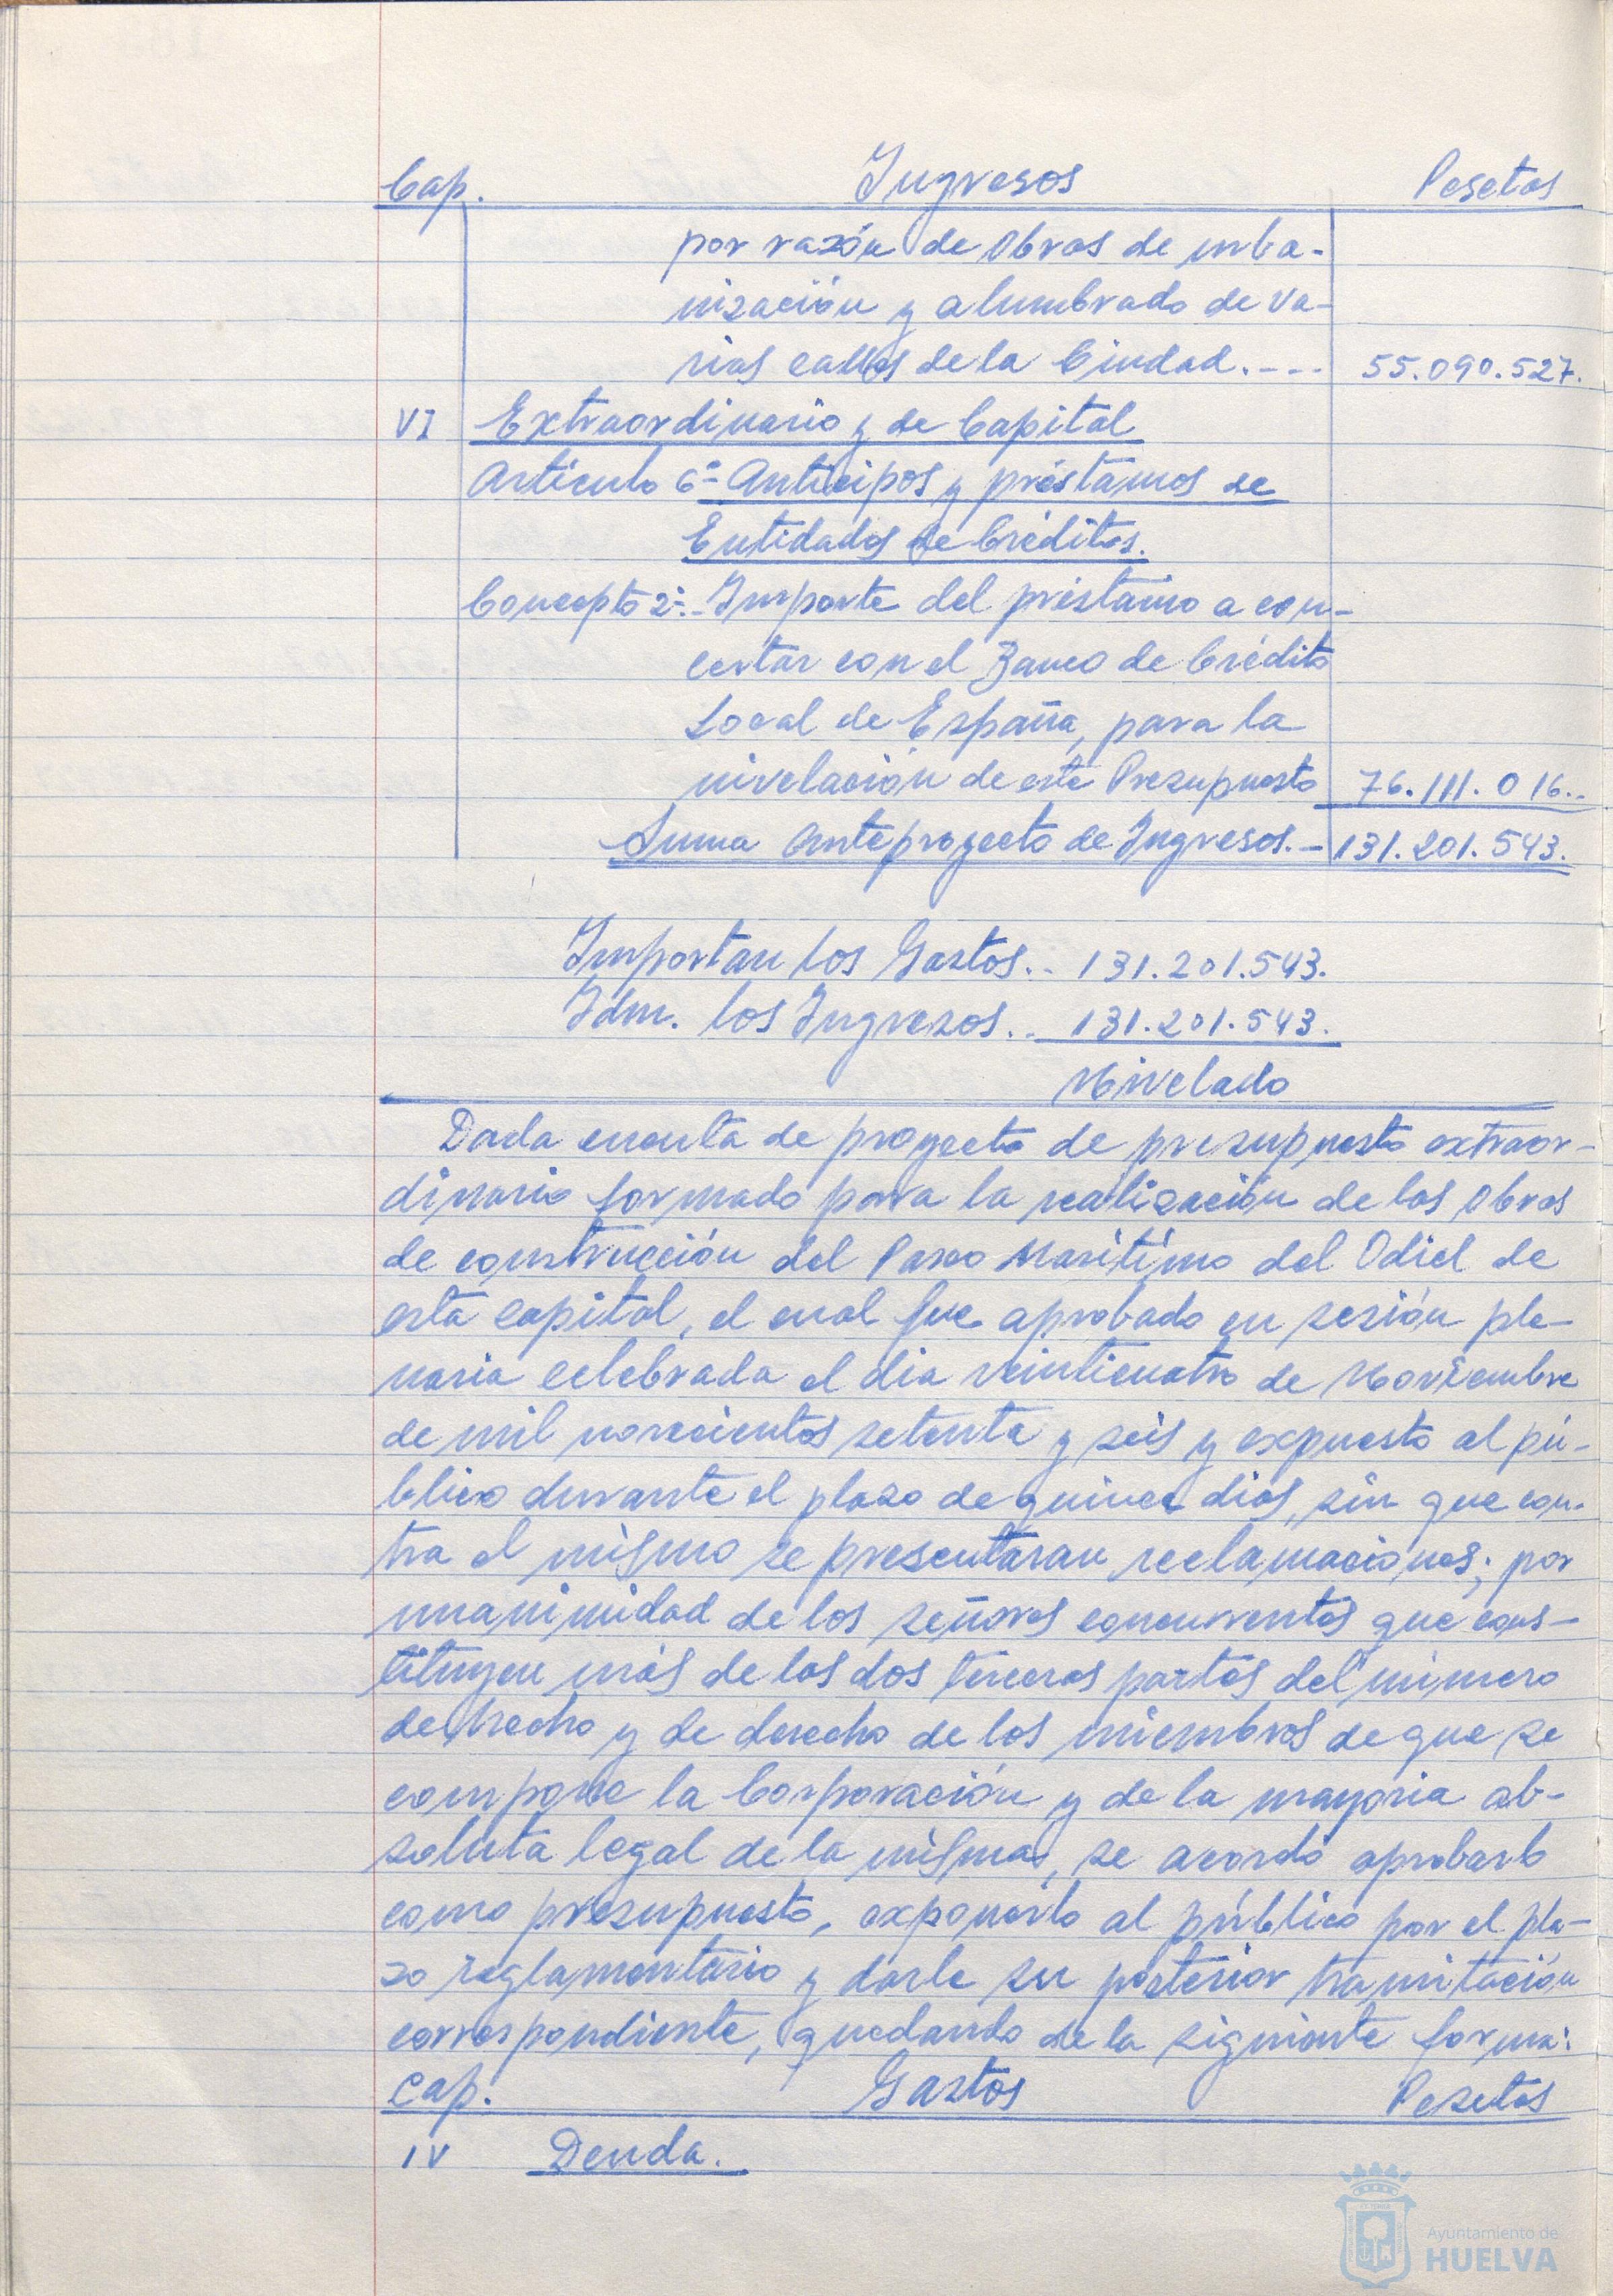 Cap. Ingresos Pesetas
por razón de Obras de urba-
nización y alumbrado de va-
rias calles de la Ciudad.--- 55.090.527.
VI Extraordinario y de Capital
Artículo 6º Anticipos y préstamos de
Entidades de Créditos.
Concepto 2º.- Importe del préstamo a con-
certar con el Banco de Crédito
Local de España, para la
nivelación de este Presupuesto 76.111.016.-
Suma Anteproyecto de Ingresos.- 131.201.543.
Importan los Gastos.. 131.201.543.
Idm. los Ingresos.. 131.201.543.
Nivelado
Dada cuenta de proyecto de presupuesto extraor-
dinario formado para la realización de las Obras
de construcción del Paseo Marítimo del Odiel de
esta capital, el cual fue aprobado en sesión ple-
naria celebrada el dia veinticuatro de Noviembre
de mil novecientos setenta y seis y expuesto al pú-
blico durante el plazo de quince dias, sin que con-
tra el mismo se presentaran reclamaciones; por
unanimidad de los señores concurrentes que cons-
tituyen más de las dos terceras partes del número
de hecho y de derecho de los miembros de que se
compone la Corporación y de la mayoria ab-
soluta legal de la misma, se acordó aprobarlo
como presupuesto, exponerlo al público por el pla-
zo reglamentario y darle su posterior tramitación
correspondiente, quedando de la siguiente forma:
Cap. Gastos Pesetas
IV Deuda.
Ayuntamiento de
HUELVA